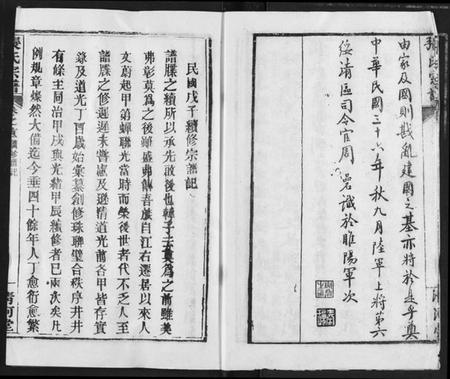 由家及國則戡亂建國之基亦將於是乎奠
中華民國三十六年秋九月陸軍上將第六
綏清區司令官周碞識於睢陽軍次
民國戊子續修宗譜記
譜牒之續所以承先啟後也韓子云莫為之前雖美
弗彰莫為之後雖盛弗傳吾族自江右遷居以來人
文蔚起甲第蟬聯光當時而榮後世者代不乏人至
譜牒之修遲遲未嘗慮及遜清道光前各甲皆存實
錄及道光丁酉歲始彙纂創修珠聯璧合秩序井井
有條至同治甲戌與光緒甲辰續修者已兩次矣凡
例規章燦然大備迄今垂四十餘年人丁愈衍愈繁
張氏宗譜
清河堂